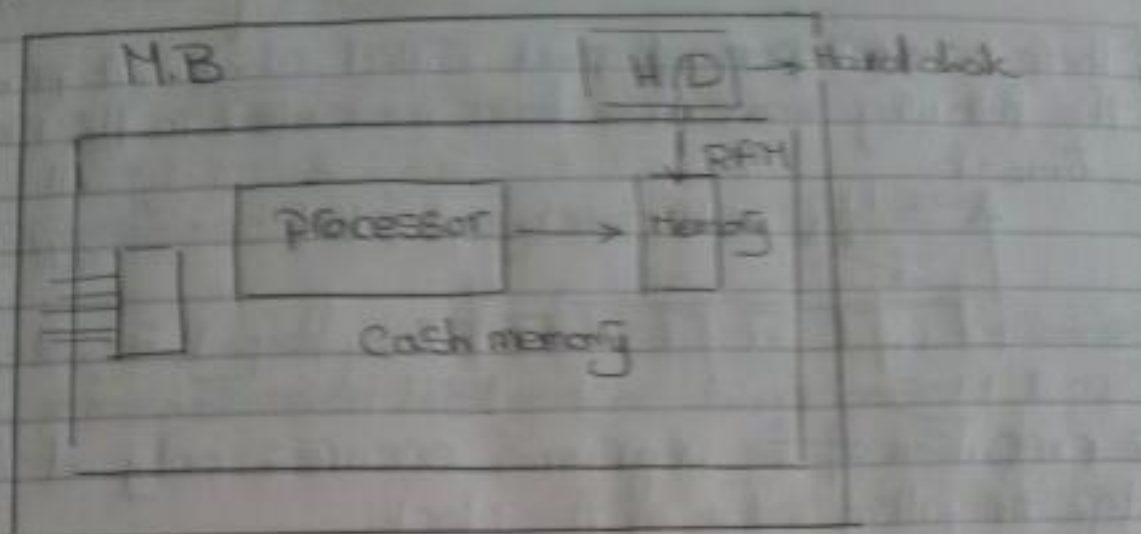 M.B
H/D → Hard disk
RAM
processor → Memory
Cash memory